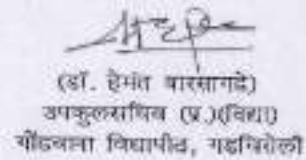 (डॉ. हेमंत बारसागडे)
उपकुलसचिव (प्र.)(विद्या)
गोंडवाना विद्यापीठ, गडचिरोली